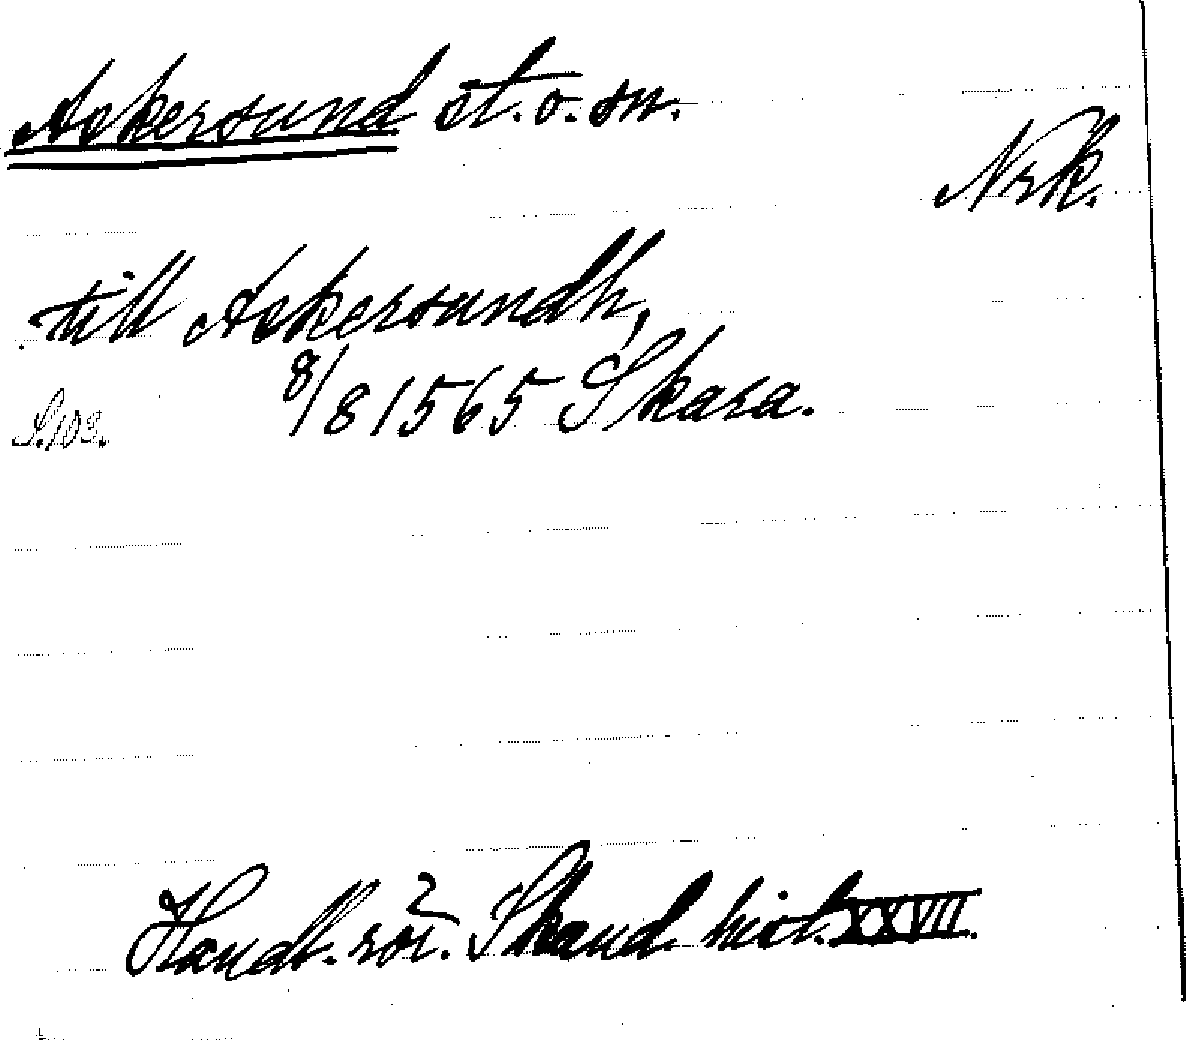 Askersund st. o. sn.
Nrk.
till Askersundh,
8/8 1565 Skara.
S. 103.
Handl. rör. Skand. hist. XXVII.